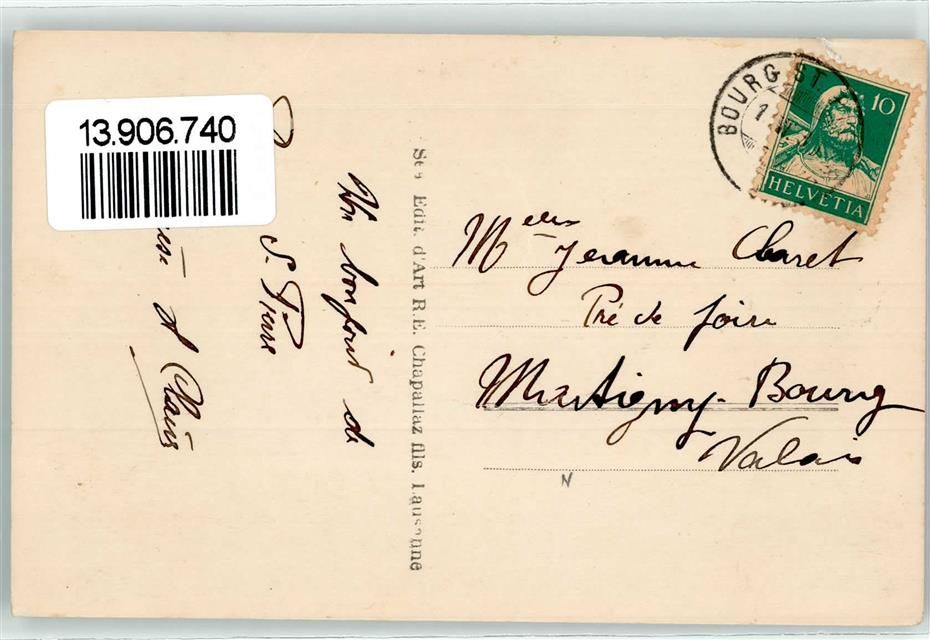 13.906.740
Un bonjour de
Sté Edit. d'Art R.E. Chapallaz fils. Lausanne
BOURG-ST
10
HELVETIA
Melles Jeanne Claret
Pré de foire
Martigny-Bourg
Valais
N